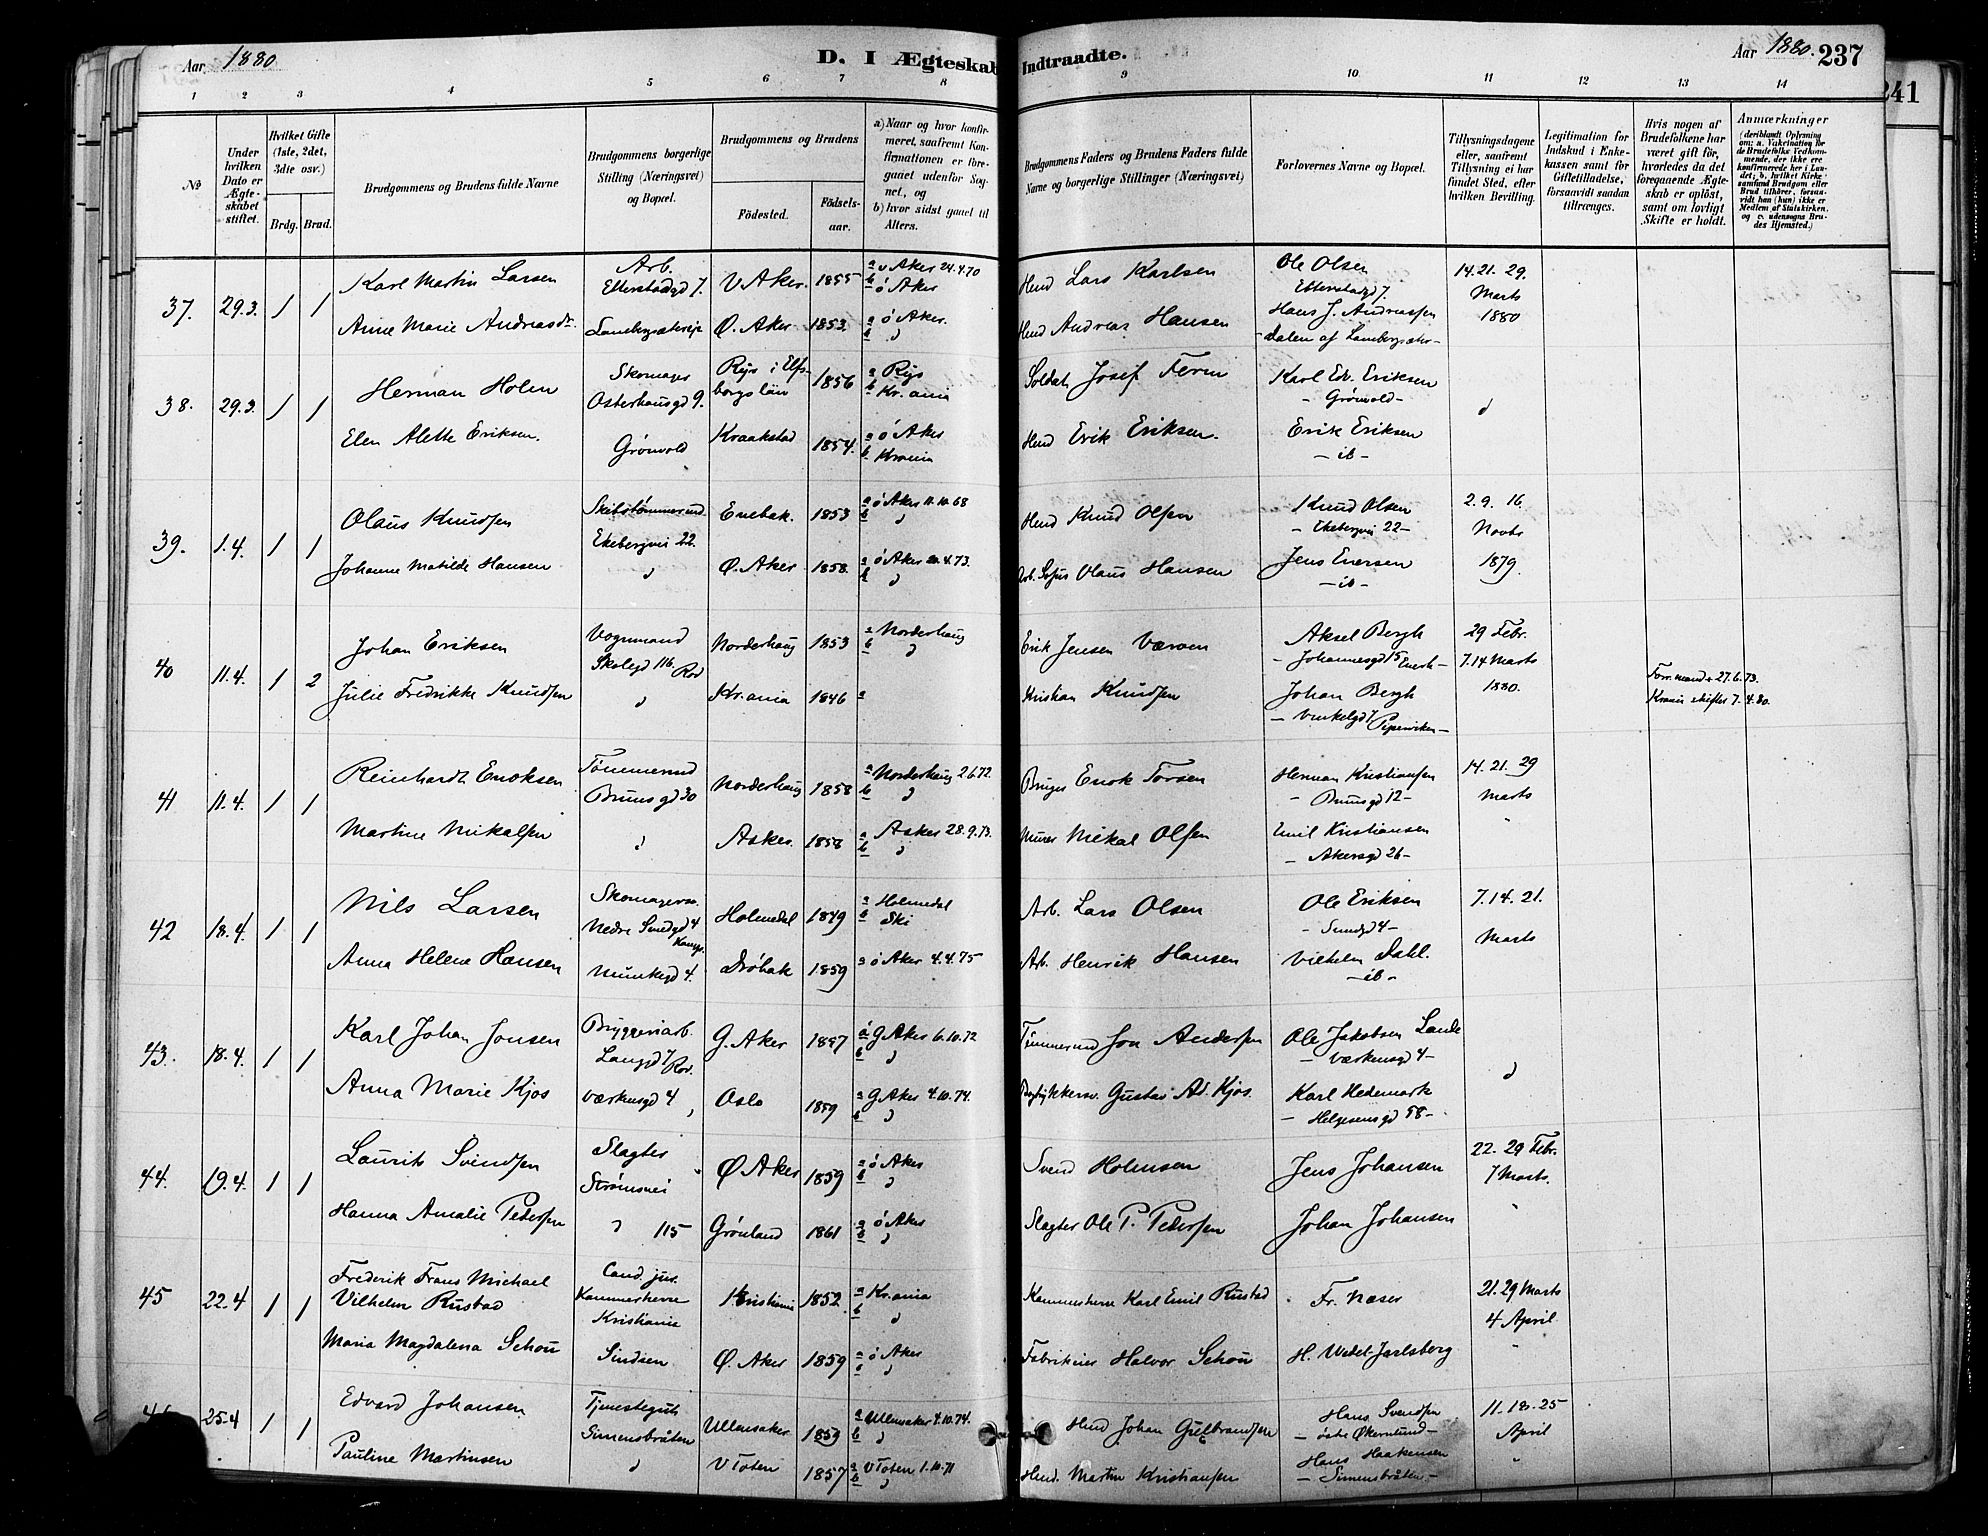 Aar 1880
D. I Ægteskab Indtraadte.
Aar 1880. 237
241
1 2 3 4 5 6 7 8 9 10 11 12 13 14
№
Under hvilken Dato er Ægteskabet stiftet.
Hvilket Gifte (1ste, 2det, 3die osv.)
Brdg. Brud.
Brudgommens og Brudens fulde Navne
Brudgommens borgerlige Stilling (Næringsvei) og Bopæl.
Brudgommens og Brudens
Födested.
Födselsaar.
a) Naar og hvor konfirmeret, saafremt Konfirmationen er foregaaet udenfor Sognet, og
b) hvor sidst gaaet til Alters.
Brudgommens Faders og Brudens Faders fulde Navne og borgerlige Stillinger (Næringsvei)
Forlovernes Navne og Bopæl.
Tillysningsdagene eller, saafremt Tillysning ei har fundet Sted, efter hvilken Bevilling.
Legitimation for Indskud i Enkekassen samt for Giftetilladelse, forsaavidt saadan tiltrænges.
Hvis nogen af Brudefolkene har været gift för, hvorledes da det foregaaende Ægteskab er oplöst, samt om lovligt Skifte er holdt.
Anmærkninger
37. 29.3. 1 1
Karl Martin Larsen Arb. Etterstadgd 7. V Aker. 1855 a v Aker 24.4.70 b ö Aker Hmd Lars Karlsen Ole Olsen Etterstadgd 7. 14. 21. 29. Marts 1880
Anne Marie Andreasdr. Ø. Aker 1853 a ö Aker. b " Hmd Andreas Hansen Hans J. Andreassen
38. 29.3. 1 1
Herman Holm Skomager Osterhausgd 9. Rys i Elfsborgs län 1856 a Rys b Kr.ania Soldat Josef Ferm Karl Edv. Eriksen - Grönvold - "
Elen Alette Eriksen. Grönvold Kraakstad 1854. a ö Aker b Krania Hmd Erik Eriksen. Erik Eriksen - ib -
39. 1.4. 1 1
Olaus Knudsen Skibstømmermd. Ekebergvei 22. Enebak. 1853 a ö Aker 11.10.68 b " Hmd Knud Olsen Knud Olsen - Ekebergvei 22 - 2. 9. 16 Novbr 1879.
Johanne Matilde Hansen " Ø. Aker 1858. a ö Aker 20.4.73. b " Arb. Sofus Olaus Hansen Jens Enersen - ib -
40 11.4. 1 2
Johan Eriksen Vognmand Skolegd 116. Rod Norderhaug 1853 a Norderhaug b " Erik Jensen Aksel Bergh - Johannesgd 15 29 Febr. 7. 14 Marts 1880.
Julie Fredrikke Knudsen " Kr.ania 1846 a Kristian Knudsen Johan Bergh - Vinkelgd 7 Pipervriken - Forr. mand + 27.6.73. Krania skifter. 7.4.80.
41 11.4. 1 1
Reinhardt Enoksen Tömmermd Brunsgd 30 Norderhaug 1858 a Norderhaug 2.6.72. b " Bruger Enok Torsen Herman Kristiansen - Brunsgd 12 - 14. 21. 29 Marts
Martine Mikalsen " Asker. 1858 a Asker 28.9.73. b " Murer Mikal Olsen Emil Kristiansen - Akersgd 26 - "
42 18.4. 1 1
Nils Larsen Skomagersv. Nedre Smedgd 4 Kampen Holmedal 1849 a Holmedal b Ski Arb. Lars Olsen Ole Eriksen - Smedgd 4 - 7. 14. 21. Marts
Anna Helene Hansen Munkegd 4. Dröbak 1859 a ö Aker 4.4.75 Arb. Henrik Hansen Vilhelm Dahl. - ib -
43. 18.4. 1 1
Karl Johan Jonsen Bryggeriarb. Langgd 7 Rod. G. Aker 1857 a G. Aker 6.10.72 b " Tömmermd Jon Andersen Ole Jakobsen Lande - Værkensgd 4 - "
Anna Marie Kjos Værkensgd 4 Oslo 1859 a G. Aker 4.10.74. b " Bogtrykkersv. Gustav Ad. Kjos. Karl Hedemark - Helgesensgd 58 -
44. 19.4. 1 1
Laurits Svendsen Slagter Strömsvei Ø Aker 1859 a ö Aker b " Svend Holmsen Jens Johansen 22. 29 Febr. 7 Marts.
Hanna Amalie Pedersen " 115 Grönland 1861 a ö Aker b " Slagter Ole P. Pedersen Johan Johansen "
45 22.4 1 1
Frederik Frans Michael Vilhelm Rustad Cand. jur. Kammerherre Kristiania Kristiania 1852. a Kr.ania b " Kammerherre Karl Emil Rustad Fr. Næser 21. 29 Marts 4 April
Maria Magdalena Schou Sinsen Ø. Aker 1859 a ö Aker b " Fabrikeier Halvor Schou H. Wedel-Jarlsberg "
46 25.4 1 1
Edvard Johansen Tjenestegut Simensbråten Ullensaker 1859 a Ullensaker 4.10.74. b " Hmd Johan Gulbrandsen Hans Svendsen - östre Økernlund - 11. 18. 25 April
Pauline Martinsen " V Toten 1857 a V Toten 1.10.71 b " Hmd. Martin Kristiansen Hans Haakensen - Simensbråten - "